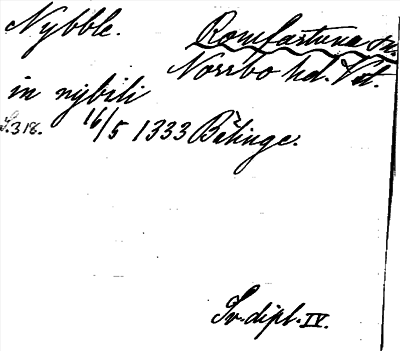 Nybble. Romfartuna sn.
Norrbo hd. Vstm.
in nybili
S. 318. 16/5 1333 Bälinge.
Sv. dipl. IV.